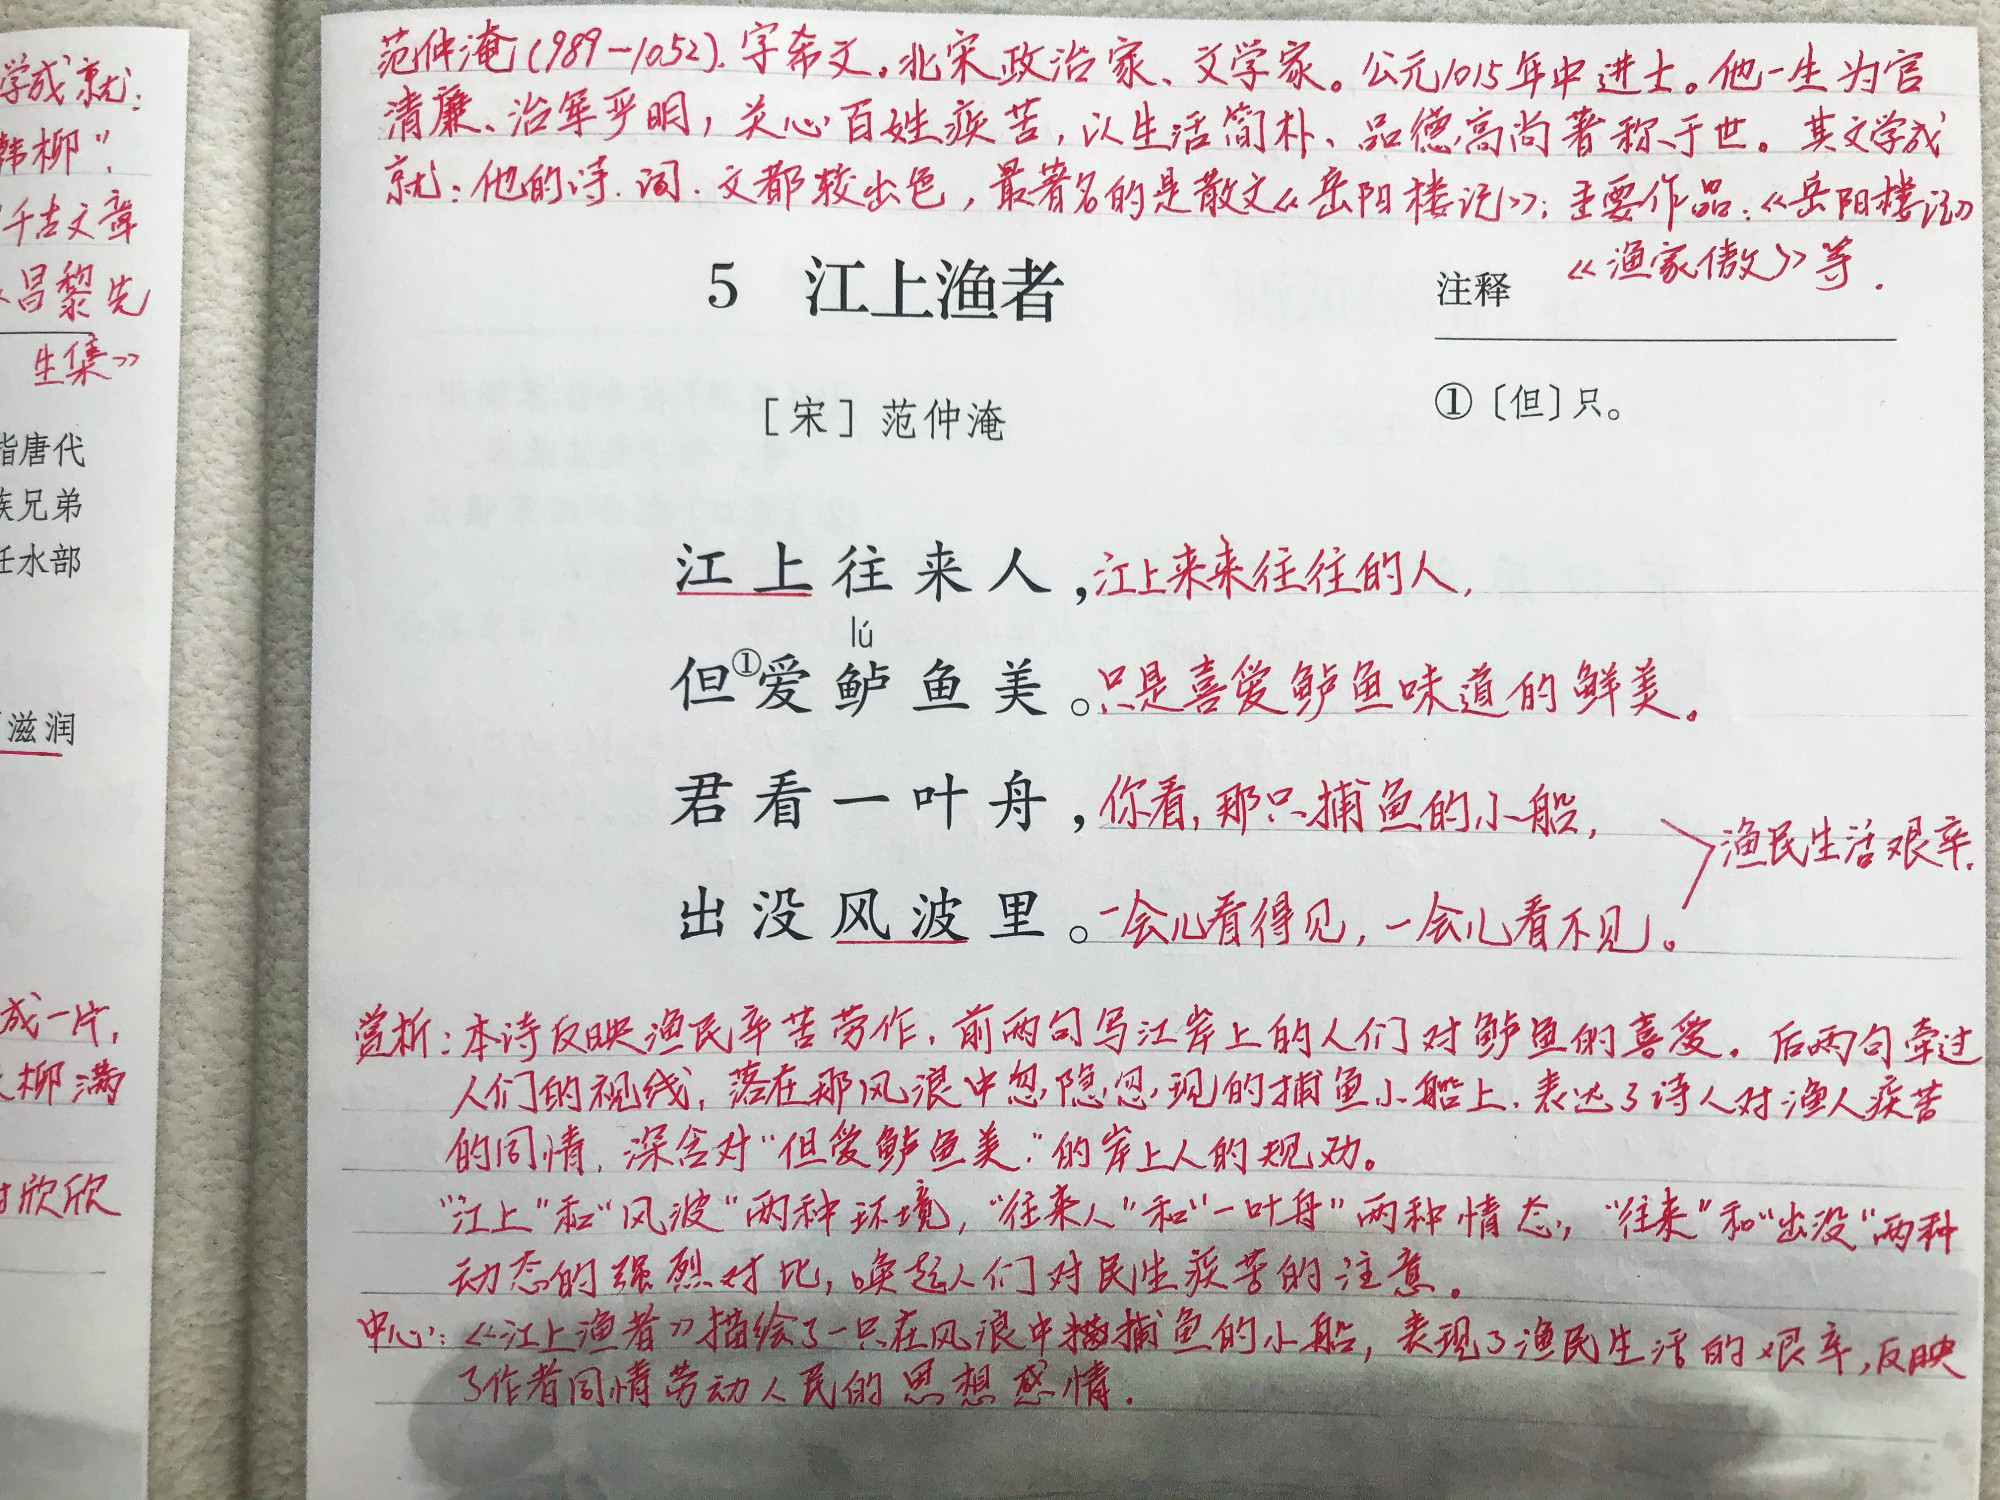 学成就：
韩柳”，
千古文章
昌黎先
生集》
指唐代
族兄弟
任水部
滋润
成一片，
柳满
欣欣
范仲淹(989—1052)，字希文。北宋政治家、文学家。公元1015年中进士。他一生为官
清廉、治军严明，关心百姓疾苦，以生活简朴、品德高尚著称于世。其文学成
就：他的诗、词、文都较出色，最著名的是散文《岳阳楼记》；主要作品：《岳阳楼记》
《渔家傲》等．
5 江上渔者
注释
［宋］范仲淹
①〔但〕只。
江上往来人，江上来来往往的人，
lú
但①爱鲈鱼美。只是喜爱鲈鱼味道的鲜美。
君看一叶舟，你看，那只捕鱼的小船，
渔民生活艰辛．
出没风波里。一会儿看得见，一会儿看不见。
赏析：本诗反映渔民辛苦劳作，前两句写江岸上的人们对鲈鱼的喜爱。后两句牵过
人们的视线，落在那风浪中忽隐忽现的捕鱼小船上，表达了诗人对渔人疾苦
的同情，深含对“但爱鲈鱼美”的岸上人的规劝。
“江上”和“风波”两种环境，“往来人”和“一叶舟”两种情态，“往来”和“出没”两种
动态的强烈对比，唤起人们对民生疾苦的注意。
中心：《江上渔者》描绘了一只在风浪中捕鱼的小船，表现了渔民生活的艰辛，反映
了作者同情劳动人民的思想感情．